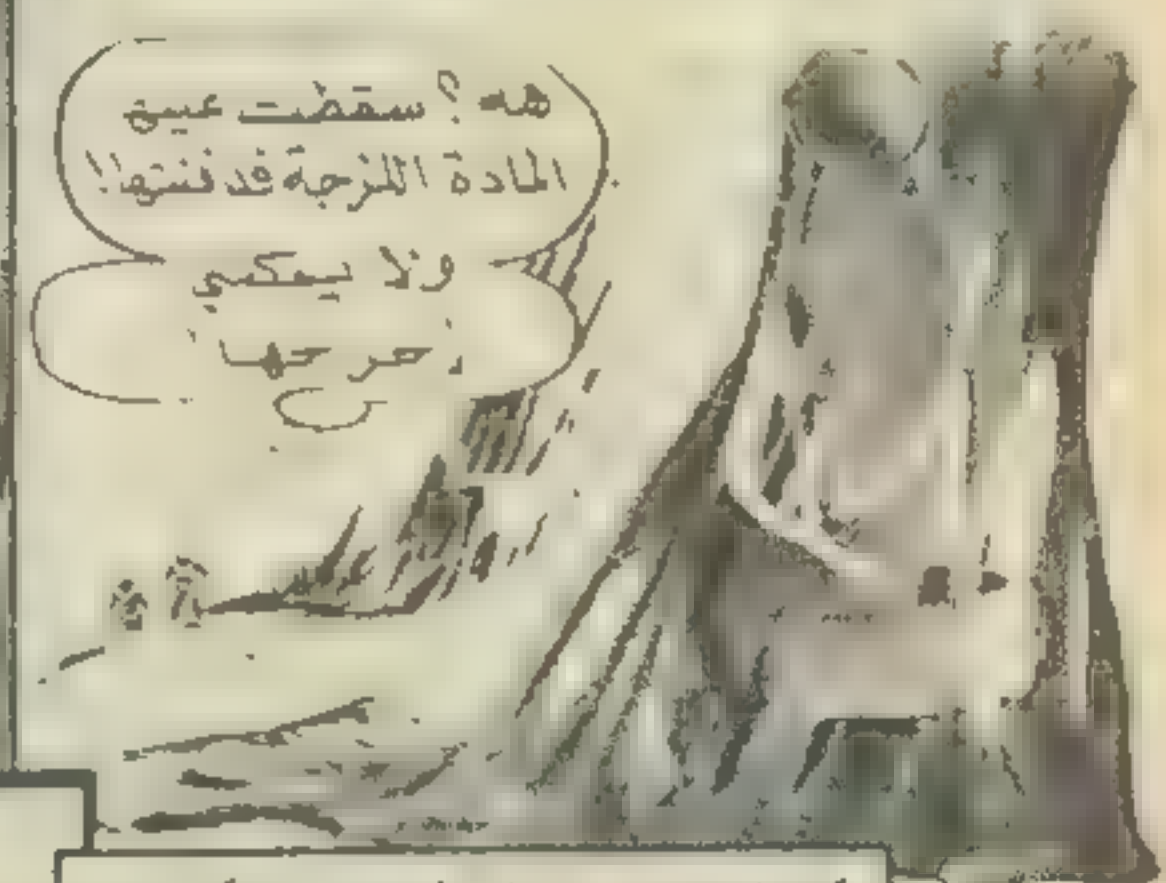 هه ؟ سقضت عيين
المادة اللزجة قد فنتها!
ولا يمكنني
زحزحتها